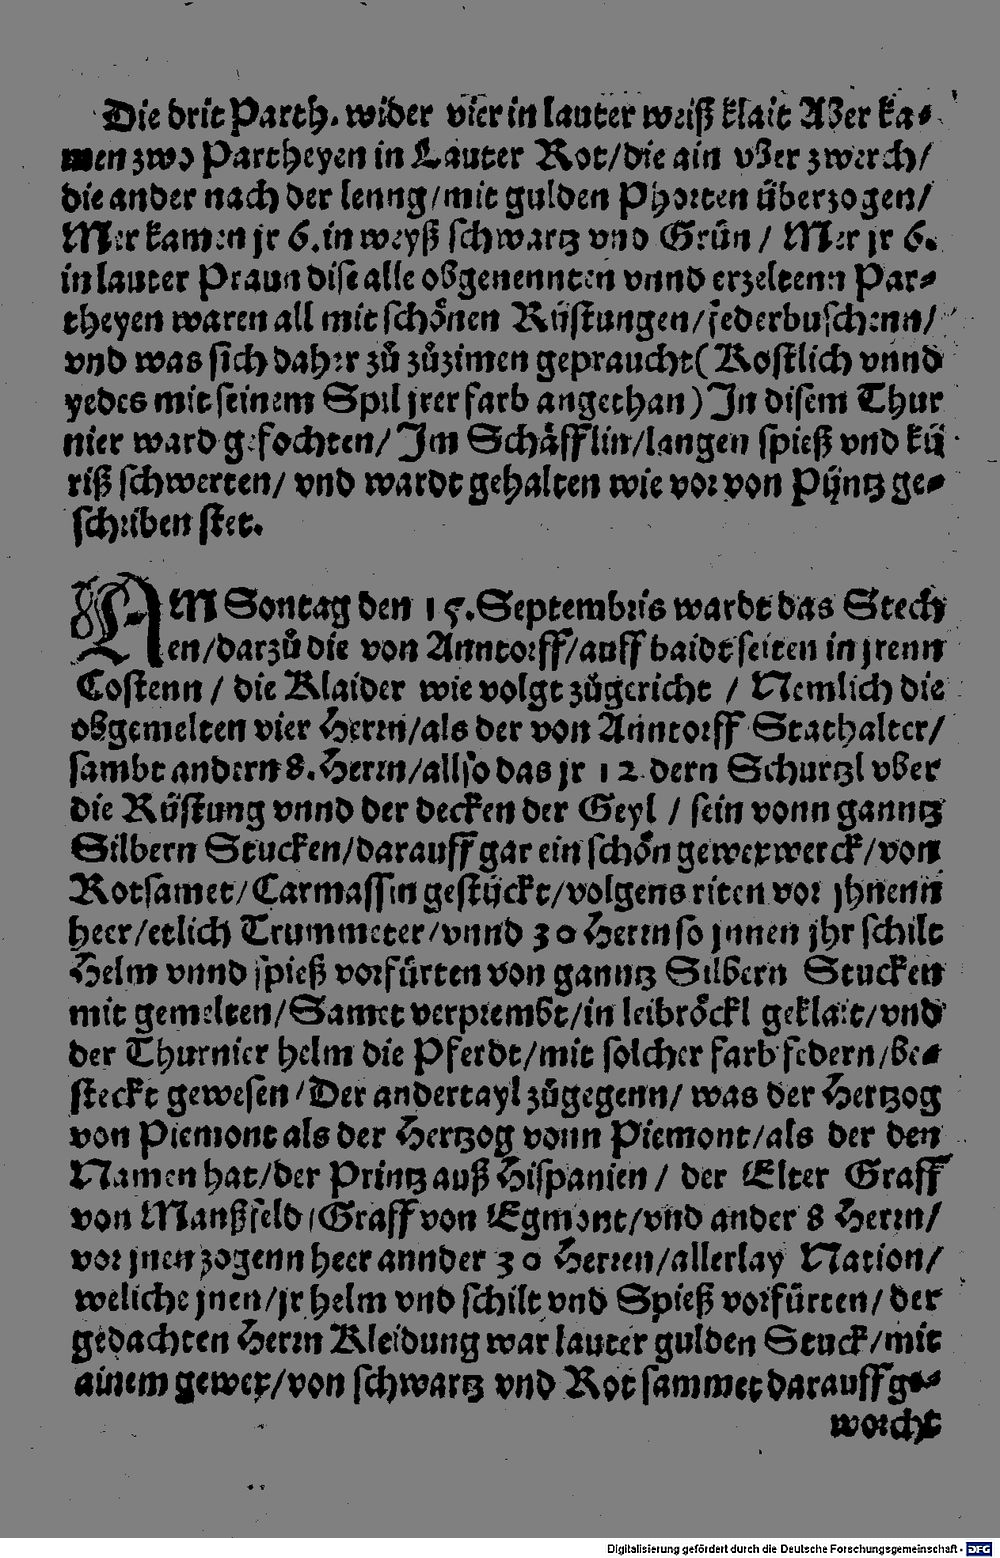 Die drit Parth. wider vier in lauter weiß klait Aber ka⸗
men zwo Partheyen in Lauter Rot/die ain vber zwerch/
die ander nach der lenng/mit gulden Phorten überzogen/
Mer kamen jr 6. in weyß schwartz vnd Grün / Mer jr 6.
in lauter Praun dise alle obgenennten vnnd erzeltenn Par⸗
theyen waren all mit schönen Rüstungen/federbuschenn/
vnd was sich daher zů zůzimen gepraucht( Kostlich vnnd
yedes mit seinem Spil jrer farb angethan ) In disem Thur
nier ward gefochten/ Im Schäfflin/langen spieß vnd kü
riß schwerten/ vnd wardt gehalten wie vor von Püntz ge⸗
schriben stet.
AM Sontag den 15. Septembris wardt das Stech
en/darzů die von Anntorff/auff baidt seiten in jrenn
Costenn / die Klaider wie volgt zůgericht / Nemlich die
obgemelten vier Herrn/als der von Anntorff Stathalter/
sambt andern 8. Herrn/allso das jr 12 dern Schurtzl vber
die Rüstung vnnd der decken der Geyl / sein vonn ganntz
Silbern Stucken/darauff gar ein schön gewexwerck/von
Rotsamet/Carmassin gestückt/volgens riten vor jhnenn
heer/etlich Trummeter/vnnd 30 Herrn so jnnen jhr schilt
Helm vnnd spieß vorfürten von ganntz Silbern Stucken
mit gemelten/Samet verprembt/in leibröckl geklait/vnd
der Thurnier helm die Pferdt/mit solcher farb federn/be⸗
steckt gewesen/Der andertayl zůgegenn/ was der Hertzog
von Piemont als der Hertzog vonn Piemont/als der den
Namen hat/der Printz auß Hispanien / der Elter Graff
von Manßfeld/Graff von Egmont/vnd ander 8 Herrn/
vor jnen zogenn heer annder 30 Herren/allerlay Nation/
weliche jnen/jr helm vnd schilt vnd Spieß vorfürten/ der
gedachten Herrn Kleidung war lauter gulden Stuck/mit
ainem gewex/von schwartz vnd Rot sammet darauff ge⸗
worcht
Digitalisierung gefördert durch die Deutsche Forschungsgemeinschaft - DFG